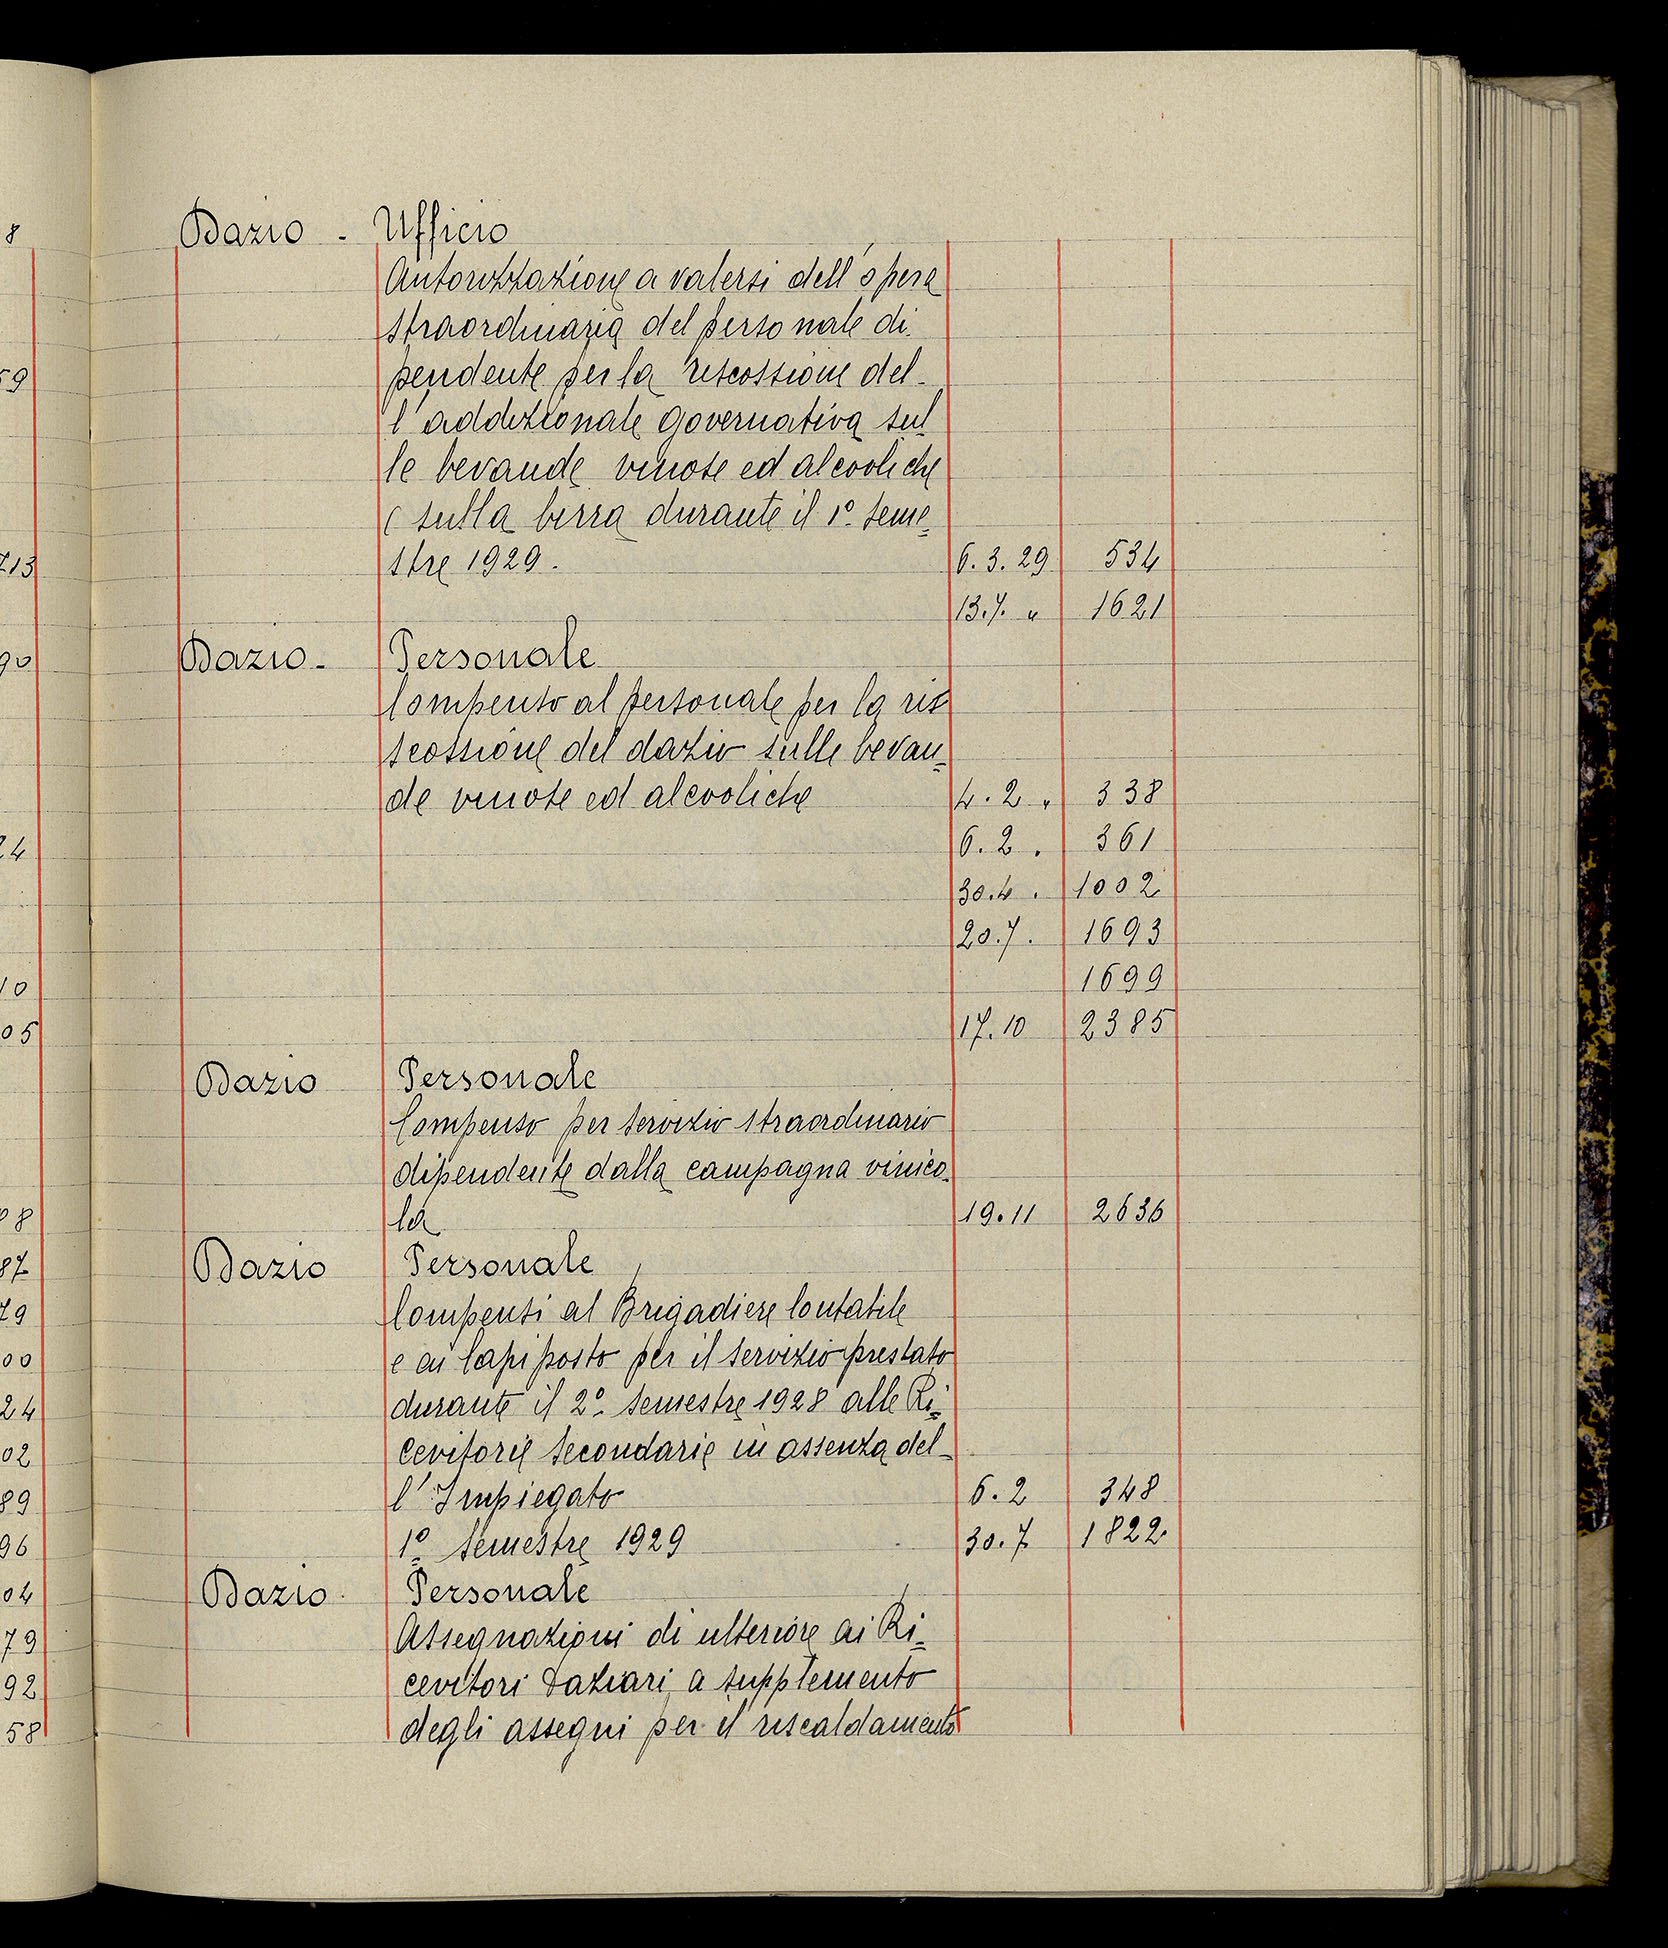 8
Dazio - Ufficio
Autorizzazione a valersi dell'opera
straordinaria del personale di
59
pendente per la riscossione del-
l'addizionale governativa sul
le bevande vinose ed alcooliche
e sulla birra durante il 1º seme
713
stre 1929. 6.3.29 534
13.7. " 1621
90
Dazio- Personale
Compenso al personale per la ris
scossione del dazio sulle bevan=
de vinose ed alcooliche 4.2 " 338
24
6.2 . 361
30.4 . 1002
20.7. 1693
10
1699
05
17.10 2385
Dazio Personale
Compenso per servizio straordinario
dipendente dalla campagna vinico-
08
la 19.11 2636
87
Dazio Personale
79
Compensi al Brigadiere Contabile
00
e ai Capi posto per il servizio prestato
24
durante il 2º semestre 1928 alle Ri=
02
cevitorie secondarie in assenza del-
89
l'Impiegato 6.2 348
96
1º semestre 1929 30.7 1822
04
Dazio Personale
79
Assegnazioni di ulteriore ai Ri=
92
cevitori daziari, a supplemento
58
degli assegni per il riscaldamento